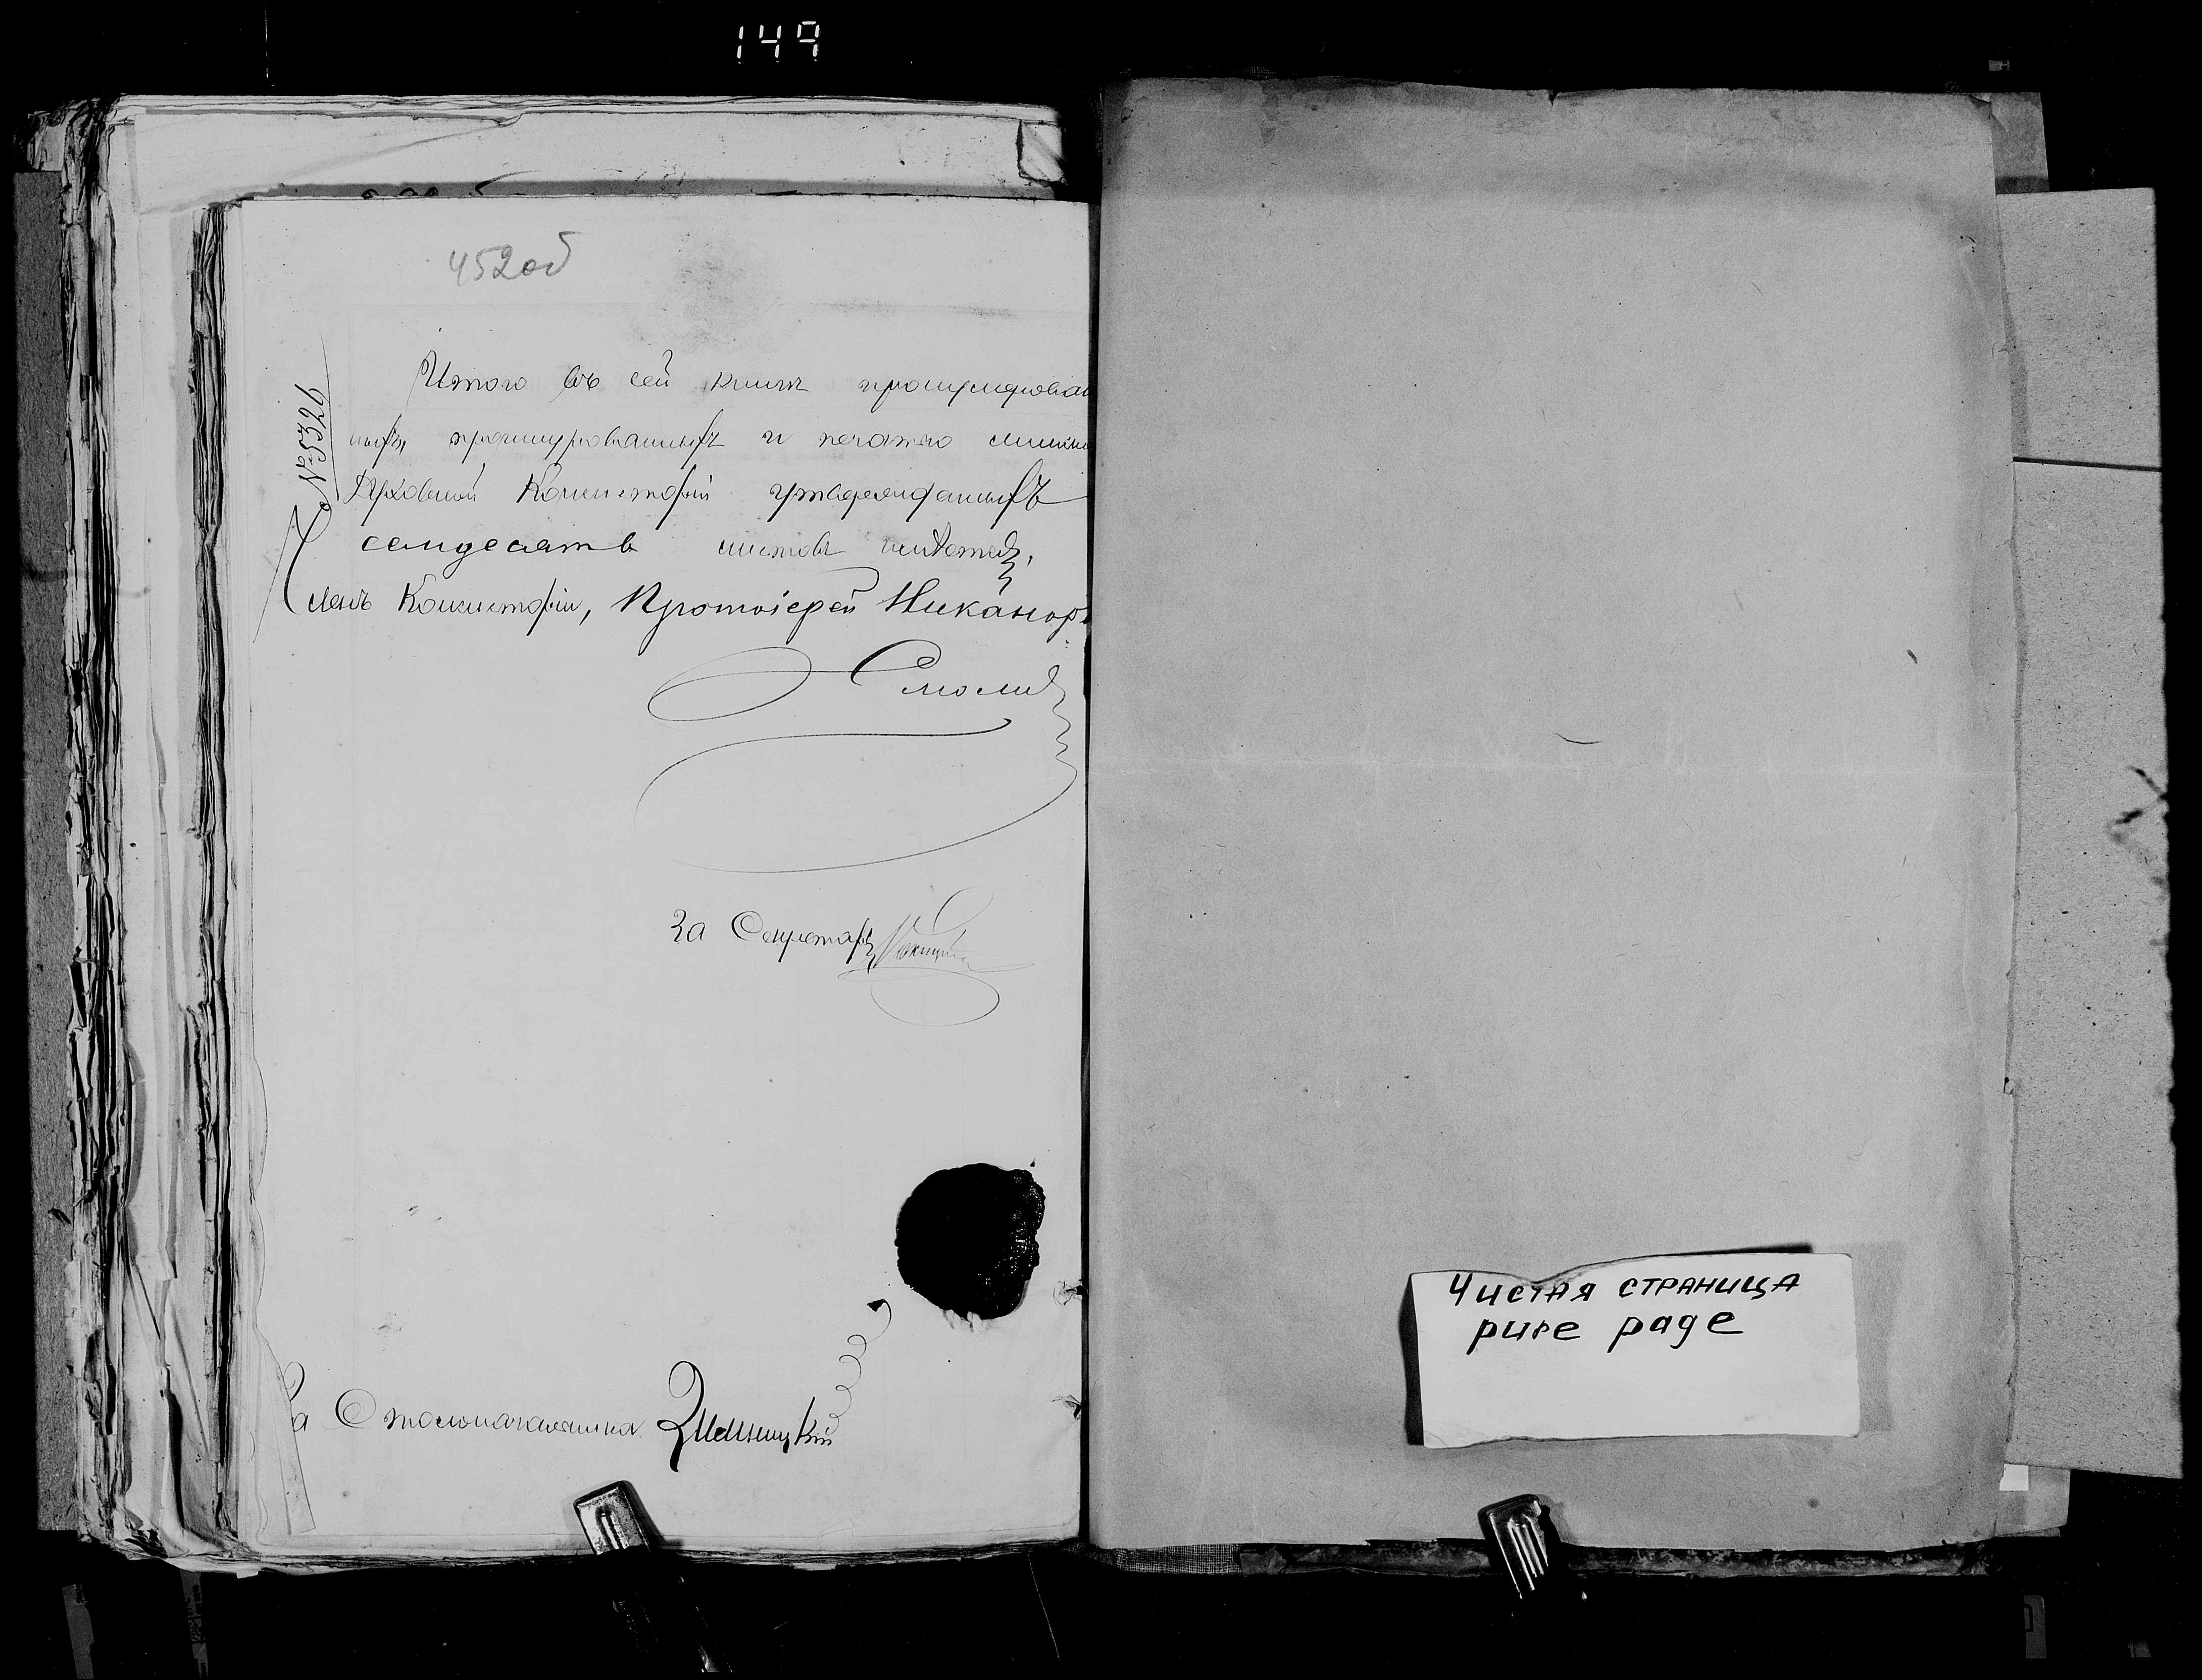 149
452об
№5326
Итого въ сей книгѣ пронумерован
ныхъ, прошнурованныхъ и печатью
Духовной Консисторіи утвержденныхъ
семдесятъ листовъ имѣется,
Членъ Консисторіи, Протоіерей Никаноръ
Смолич
За Секретаря
За Столоначальника
Чистая страница
pure page